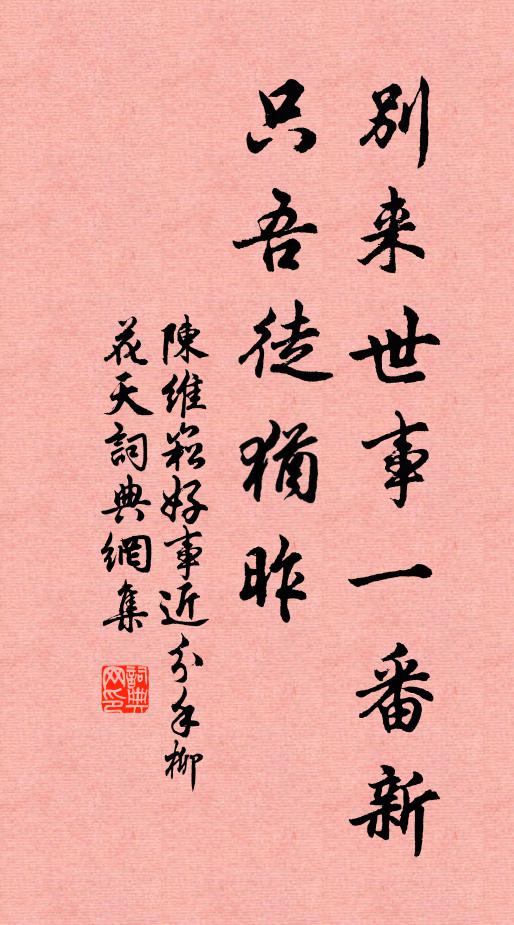 別来世事一番新
只吾徒猶昨
陳維崧好事近分手柳
花天詞典網集
詞典網印